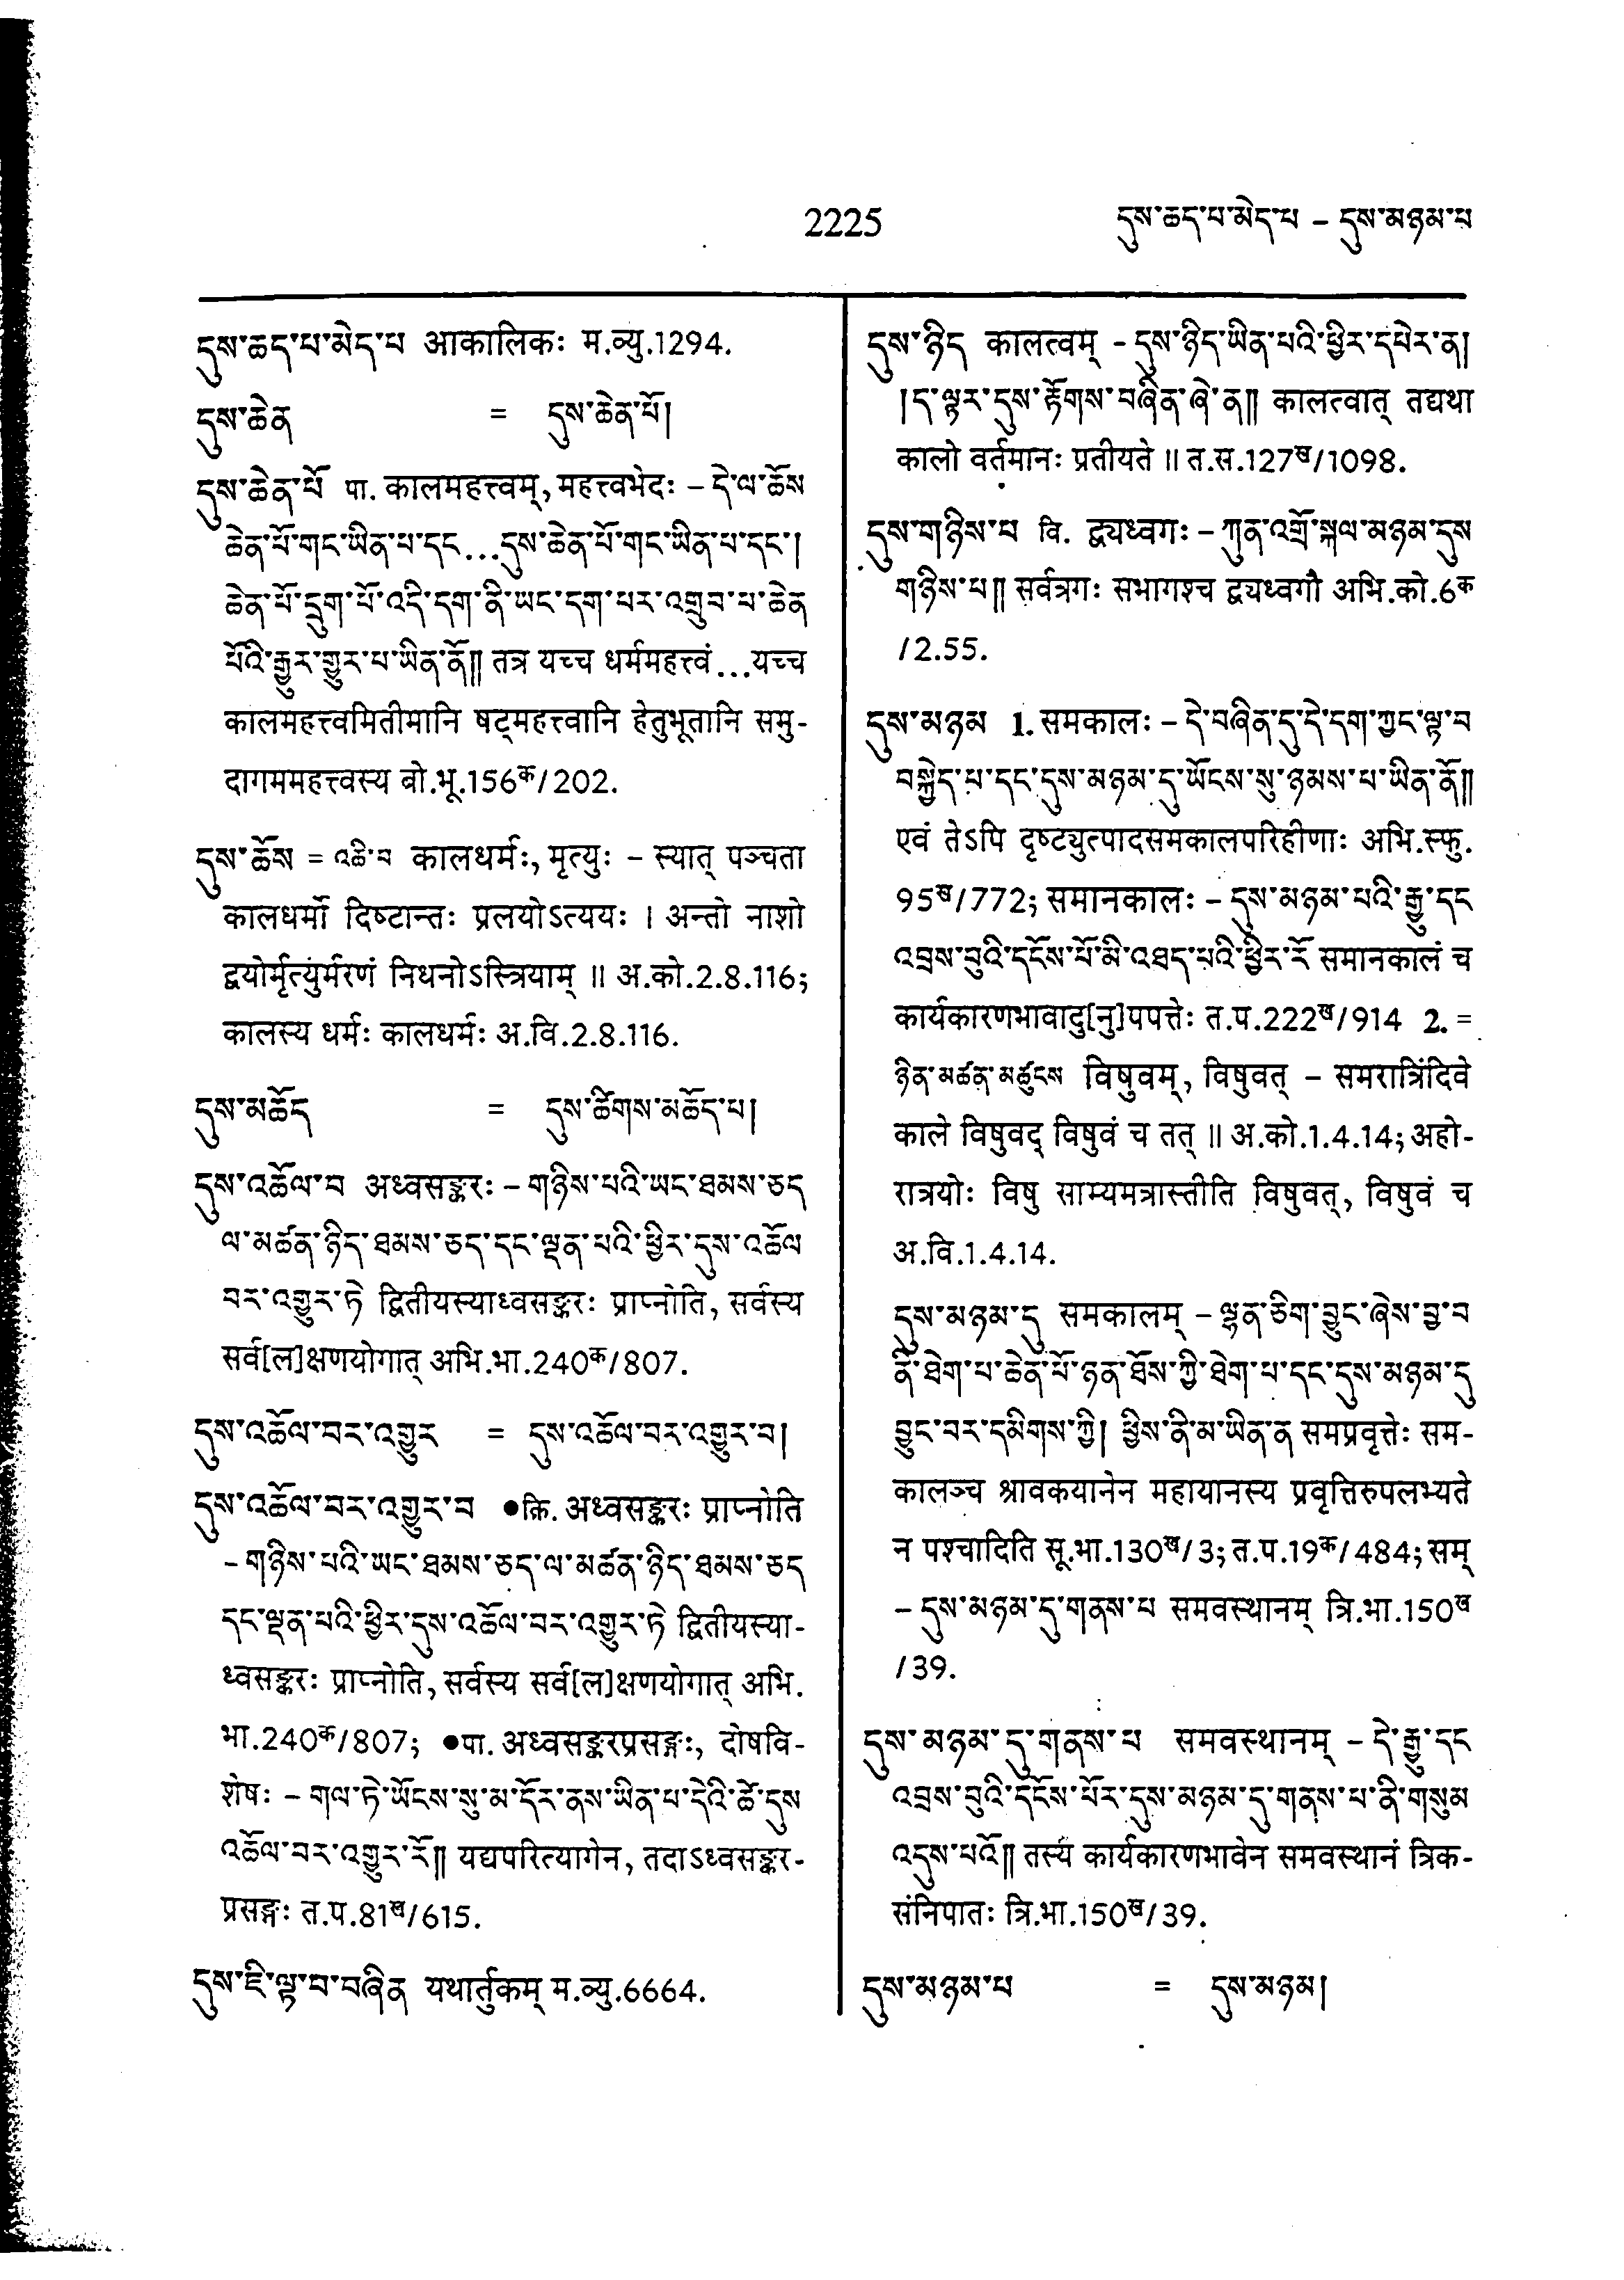 2225
དུས་ཆད་པ་མེད་པ – དུས་མཉམ་པ
དུས་ཆད་པ་མེད་པ आकालिकः म.व्यु.1294.
དུས་ཆེན = དུས་ཆེན་པོ།
དུས་ཆེན་པོ पा. कालमहत्त्वम्, महत्त्वभेदः – དེ་ལ་ཆོས
ཆེན་པོ་གང་ཡིན་པ་དང...དུས་ཆེན་པོ་གང་ཡིན་པ་དང་།
ཆེན་པོ་དྲུག་པོ་འདི་དག་ནི་ཡང་དག་པར་འགྲུབ་པ་ཆེན
པོའི་རྒྱུར་གྱུར་པ་ཡིན་ནོ༎ तत्र यच्च धर्ममहत्त्वं...यच्च
कालमहत्त्वमितीमानि षट्महत्त्वानि हेतुभूतानि समु-
दागममहत्त्वस्य बो.भू.156क/202.
དུས་ཆོས = འཆི་བ कालधर्मः, मृत्युः – स्यात् पञ्चता
कालधर्मो दिष्टान्तः प्रलयोऽत्ययः । अन्तो नाशो
द्वयोर्मृत्युर्मरणं निधनोऽस्त्रियाम् ॥ अ.को.2.8.116;
कालस्य धर्मः कालधर्मः अ.वि.2.8.116.
དུས་མཆོད = དུས་ཚིགས་མཆོད་པ།
དུས་འཆོལ་བ अध्वसङ्करः – གཉིས་པའི་ཡང་ཐམས་ཅད
ལ་མཚན་ཉིད་ཐམས་ཅད་དང་ལྡན་པའི་ཕྱིར་དུས་འཆོལ
བར་འགྱུར་ཏེ द्वितीयस्याध्वसङ्करः प्राप्नोति, सर्वस्य
सर्व[ल]क्षणयोगात् अभि.भा.240क/807.
དུས་འཆོལ་བར་འགྱུར = དུས་འཆོལ་བར་འགྱུར་བ།
དུས་འཆོལ་བར་འགྱུར་བ ●क्रि. अध्वसङ्करः प्राप्नोति
– གཉིས་པའི་ཡང་ཐམས་ཅད་ལ་མཚན་ཉིད་ཐམས་ཅད
དང་ལྡན་པའི་ཕྱིར་དུས་འཆོལ་བར་འགྱུར་ཏེ द्वितीयस्या-
ध्वसङ्करः प्राप्नोति, सर्वस्य सर्व[ल]क्षणयोगात् अभि.
भा.240क/807; ●पा. अध्वसङ्करप्रसङ्गः, दोषवि-
शेषः – གལ་ཏེ་ཡོངས་སུ་མ་དོར་ནས་ཡིན་པ་དེའི་ཚེ་དུས
འཆོལ་བར་འགྱུར་རོ༎ यद्यपरित्यागेन, तदाऽध्वसङ्कर-
प्रसङ्गः त.प.81ख/615.
དུས་ཇི་ལྟ་བ་བཞིན यथार्तुकम् म.व्यु.6664.
དུས་ཉིད कालत्वम् – དུས་ཉིད་ཡིན་པའི་ཕྱིར་དཔེར་ན།
།ད་ལྟར་དུས་རྟོགས་བཞིན་ཞེ་ན༎ कालत्वात् तद्यथा
कालो वर्तमानः प्रतीयते ॥ त.स.127ख/1098.
དུས་གཉིས་པ वि. द्व्यध्वगः – ཀུན་འགྲོ་སྐལ་མཉམ་དུས
གཉིས་པ༎ सर्वत्रगः सभागश्च द्व्यध्वगौ अभि.को.6क
/2.55.
དུས་མཉམ 1. समकालः – དེ་བཞིན་དུ་དེ་དག་ཀྱང་ལྟ་བ
བསྐྱེད་པ་དང་དུས་མཉམ་དུ་ཡོངས་སུ་ཉམས་པ་ཡིན་ནོ༎
एवं तेऽपि दृष्ट्युत्पादसमकालपरिहीणाः अभि.स्फु.
95ख/772; समानकालः – དུས་མཉམ་པའི་རྒྱུ་དང
འབྲས་བུའི་དངོས་པོ་མི་འཐད་པའི་ཕྱིར་རོ समानकालं च
कार्यकारणभावादु[नु]पपत्तेः त.प.222ख/914 2. =
ཉིན་མཚན་མཚུངས विषुवम्, विषुवत् – समरात्रिंदिवे
काले विषुवद् विषुवं च तत् ॥ अ.को.1.4.14; अहो-
रात्रयोः विषु साम्यमत्रास्तीति विषुवत्, विषुवं च
अ.वि.1.4.14.
དུས་མཉམ་དུ समकालम् – ལྷན་ཅིག་བྱུང་ཞེས་བྱ་བ
ནི་ཐེག་པ་ཆེན་པོ་ཉན་ཐོས་ཀྱི་ཐེག་པ་དང་དུས་མཉམ་དུ
བྱུང་བར་དམིགས་ཀྱི། ཕྱིས་ནི་མ་ཡིན་ན समप्रवृत्तेः सम-
कालञ्च श्रावकयानेन महायानस्य प्रवृत्तिरुपलभ्यते
न पश्चादिति सू.भा.130ख/3; त.प.19क/484; सम्
– དུས་མཉམ་དུ་གནས་པ समवस्थानम् त्रि.भा.150ख
/39.
དུས་མཉམ་དུ་གནས་པ समवस्थानम् – དེ་རྒྱུ་དང
འབྲས་བུའི་དངོས་པོར་དུས་མཉམ་དུ་གནས་པ་ནི་གསུམ
འདུས་པའོ༎ तस्य कार्यकारणभावेन समवस्थानं त्रिक-
संनिपातः त्रि.भा.150ख/39.
དུས་མཉམ་པ = དུས་མཉམ།